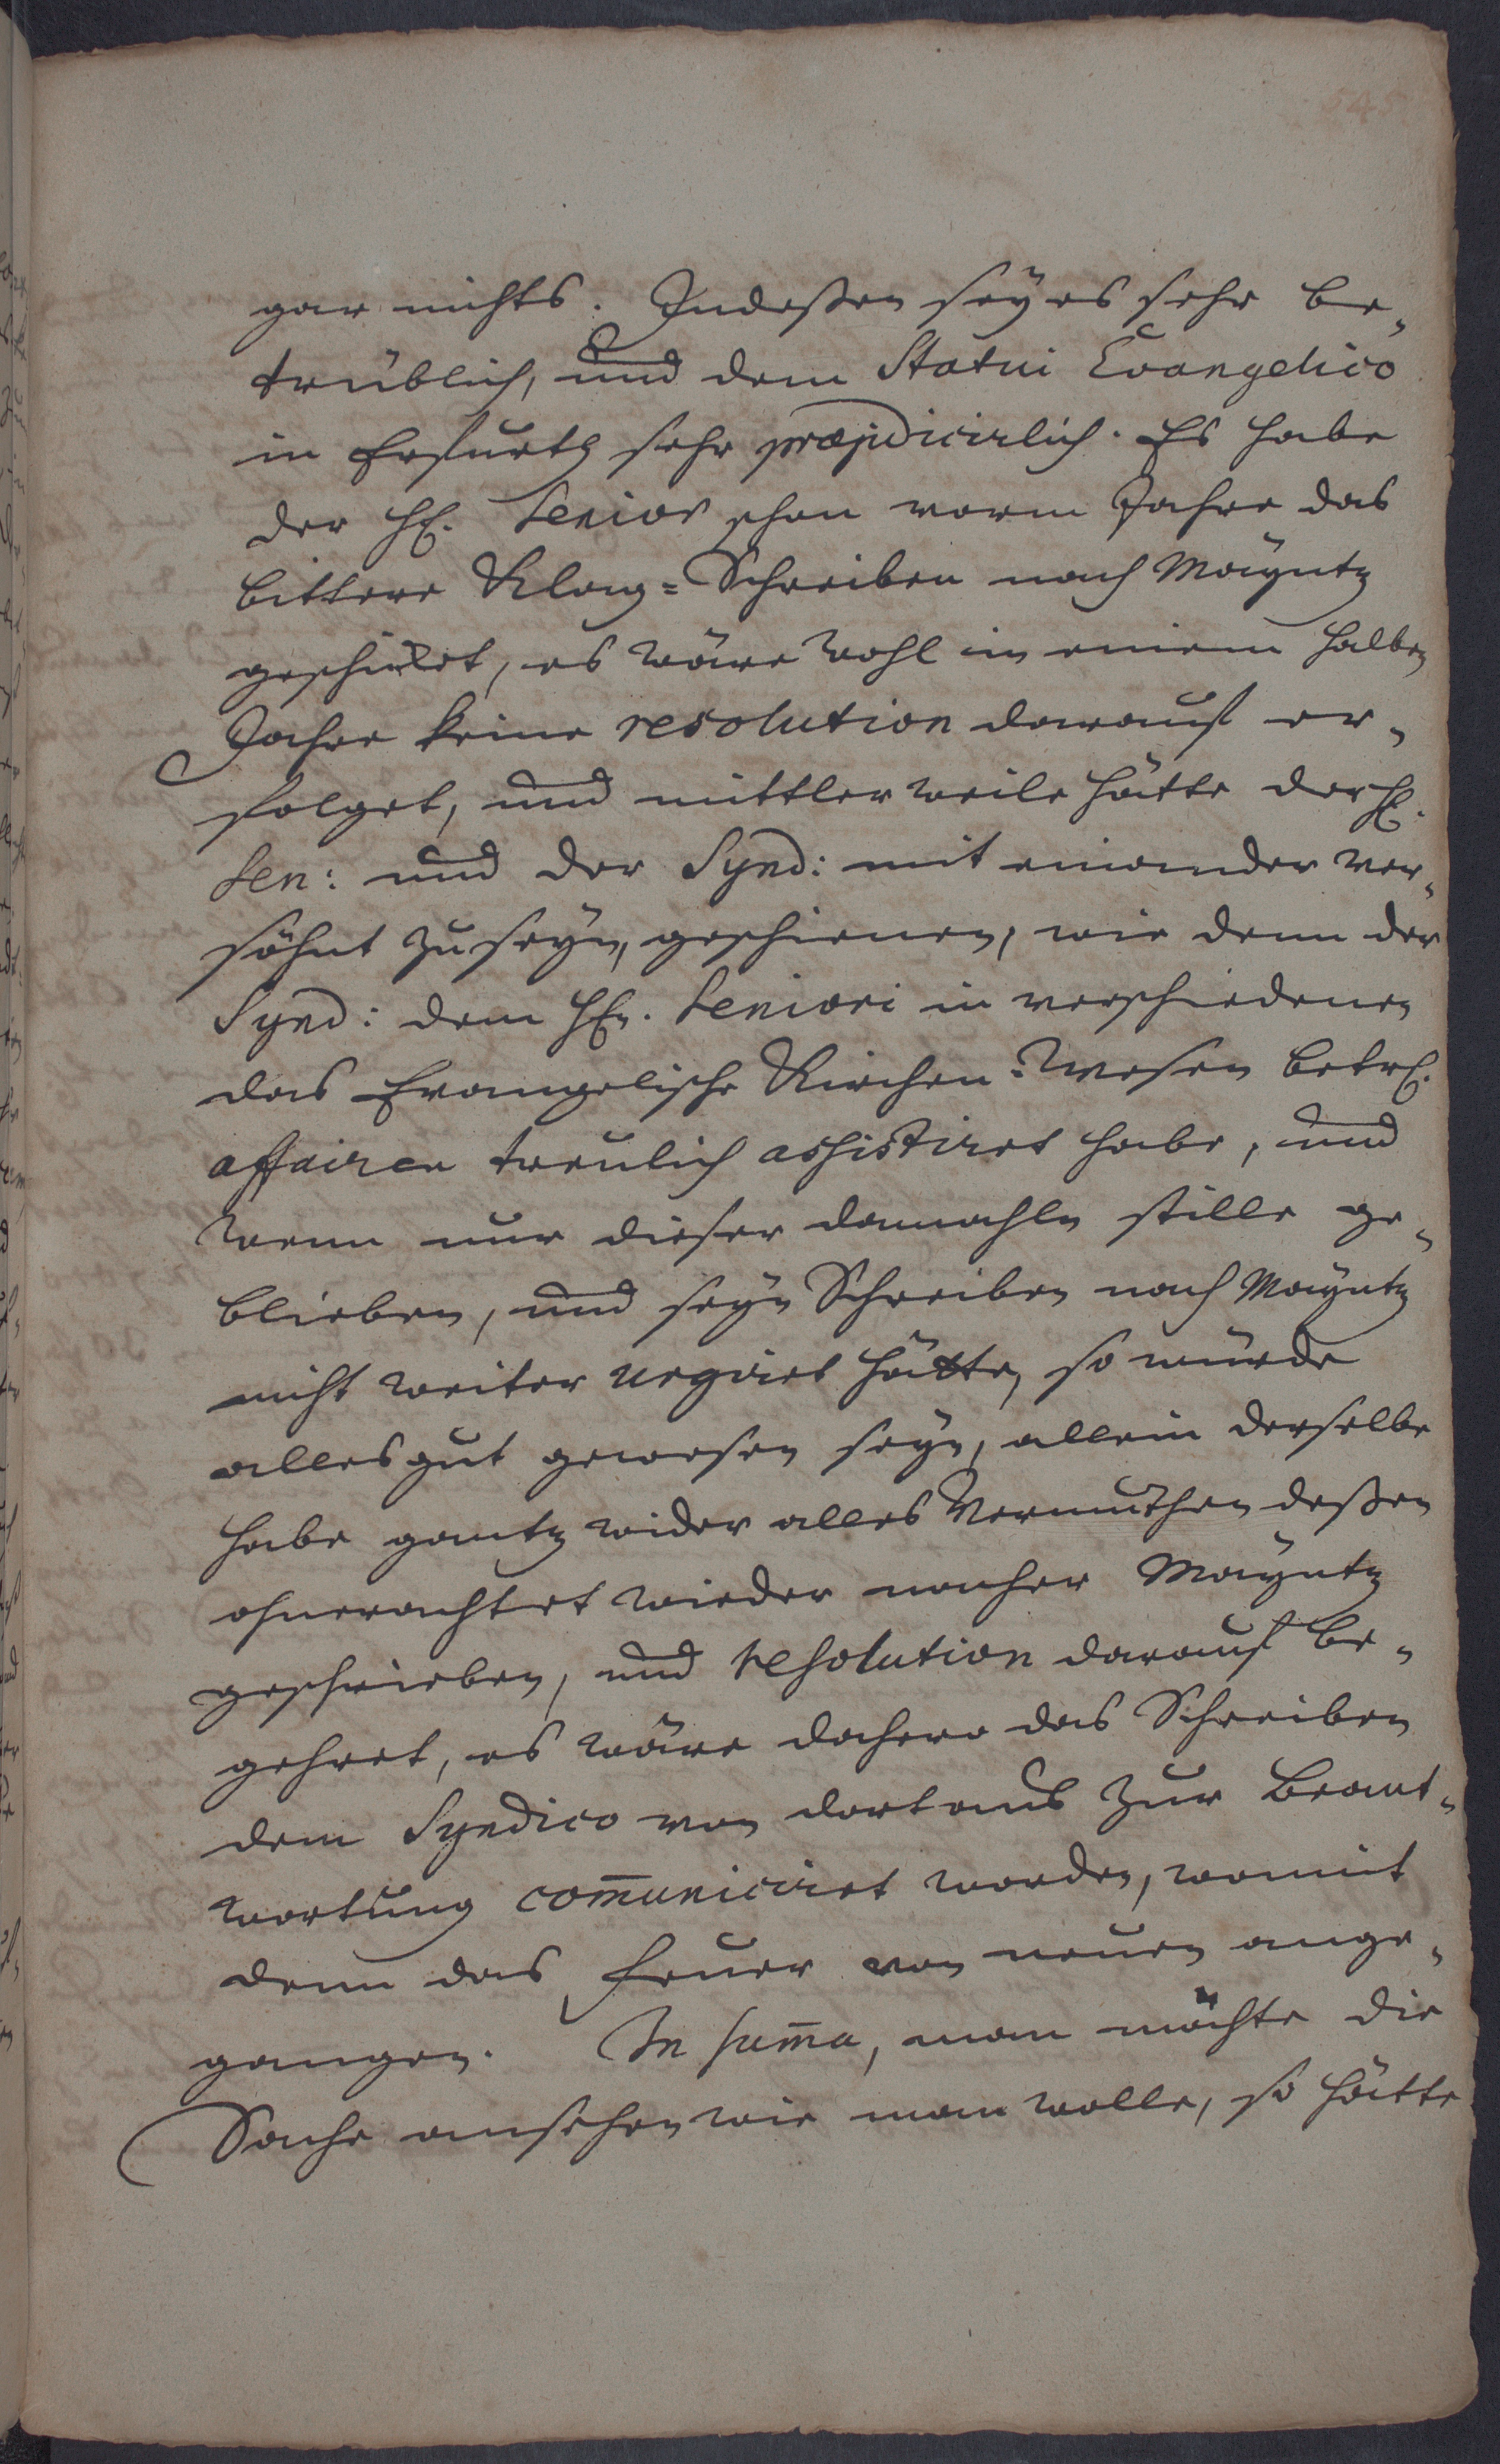 545
gar nichts. Indeßen sey es sehr be-
trüblich, und dem Statui Evangelico
in Erfurth sehr præjudicirlich. Es habe
der H. Senior schon vorm Jahre das
bittere Klag-Schreiben nach Mayntz
geschicket, es wäre wohl in einem halben
Jahre keine resolution darauf er-
folget, und mittlerweile hätte der H.
Sen: und der Synd: mit einander ver-
söhnt zu seyn, geschienen, wie denn der
Synd: dem Hn. Seniori in verschiedenen
das Evangelische Kirchen-Wesen betr.
affairen treulich assistiret habe, und
wenn nur dieser damahln stille ge-
blieben, und seyn Schreiben nach Mayntz
nicht weiter urgiret hätte, so würde
alles gut gewesen seyn, allein derselbe
habe gantz wider alles Vermuthen deßen
ohnerachtet wieder nacher Mayntz
geschrieben, und resolution darauf be-
gehret, es wäre dahero das Schreiben
dem Syndico von dort aus zur Beant-
wortung com̅uniciret worden, womit
denn das Feuer von neuen ange-
gangen. In sum̅a, man möchte die
Sache ansehen wie man wolle, so hätte